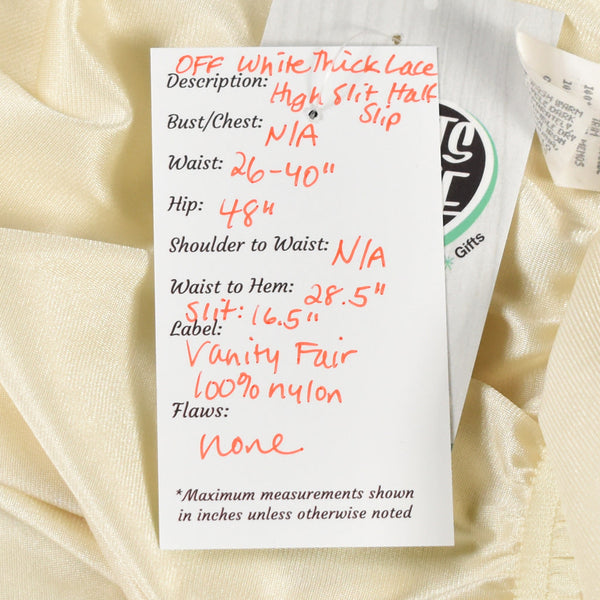 OFF White Thick Lace
Description: High Slit Half
Slip
Bust/Chest: N/A
Waist: 26-40"
Hip: 48"
Shoulder to Waist: N/A
Waist to Hem: 28.5"
Slit: 16.5"
Label:
Vanity Fair
100% nylon
Flaws:
none
*Maximum measurements shown
in inches unless otherwise noted
Gifts